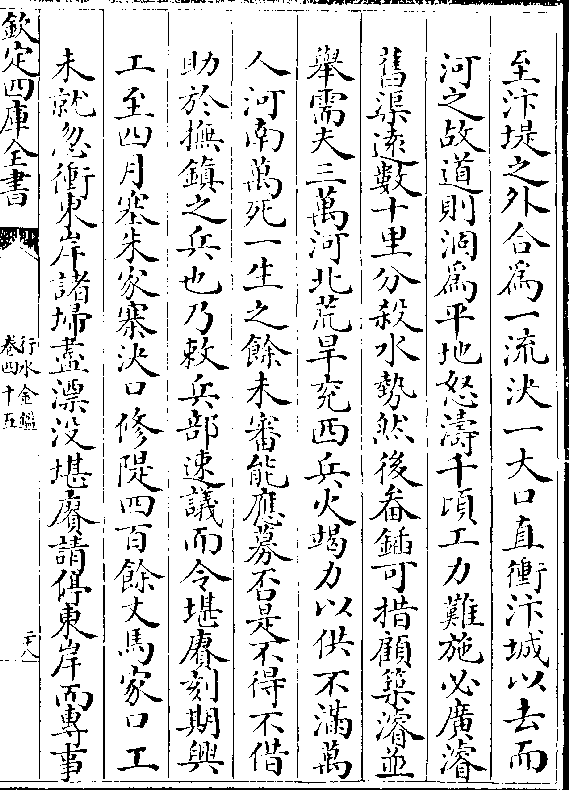 至汴堤之外合為一流決一大口直衝汴城以去而
河之故道則涸為平地怒濤千頃工力難施必廣濬
舊渠遠數十里分殺水勢然後畚鍤可措顧築濬並
舉需夫三萬河北荒旱兗西兵火竭力以供不滿萬
人河南萬死一生之餘未審能應募否是不得不借
助於撫鎮之兵也乃敕兵部速議而令堪賡刻期興
工至四月塞朱家寨決口修隄四百餘丈馬家口工
未就忽衝東岸諸埽盡漂沒堪賡請停東岸而專事
欽定四庫全書
行水金鑑
卷四十五
二八